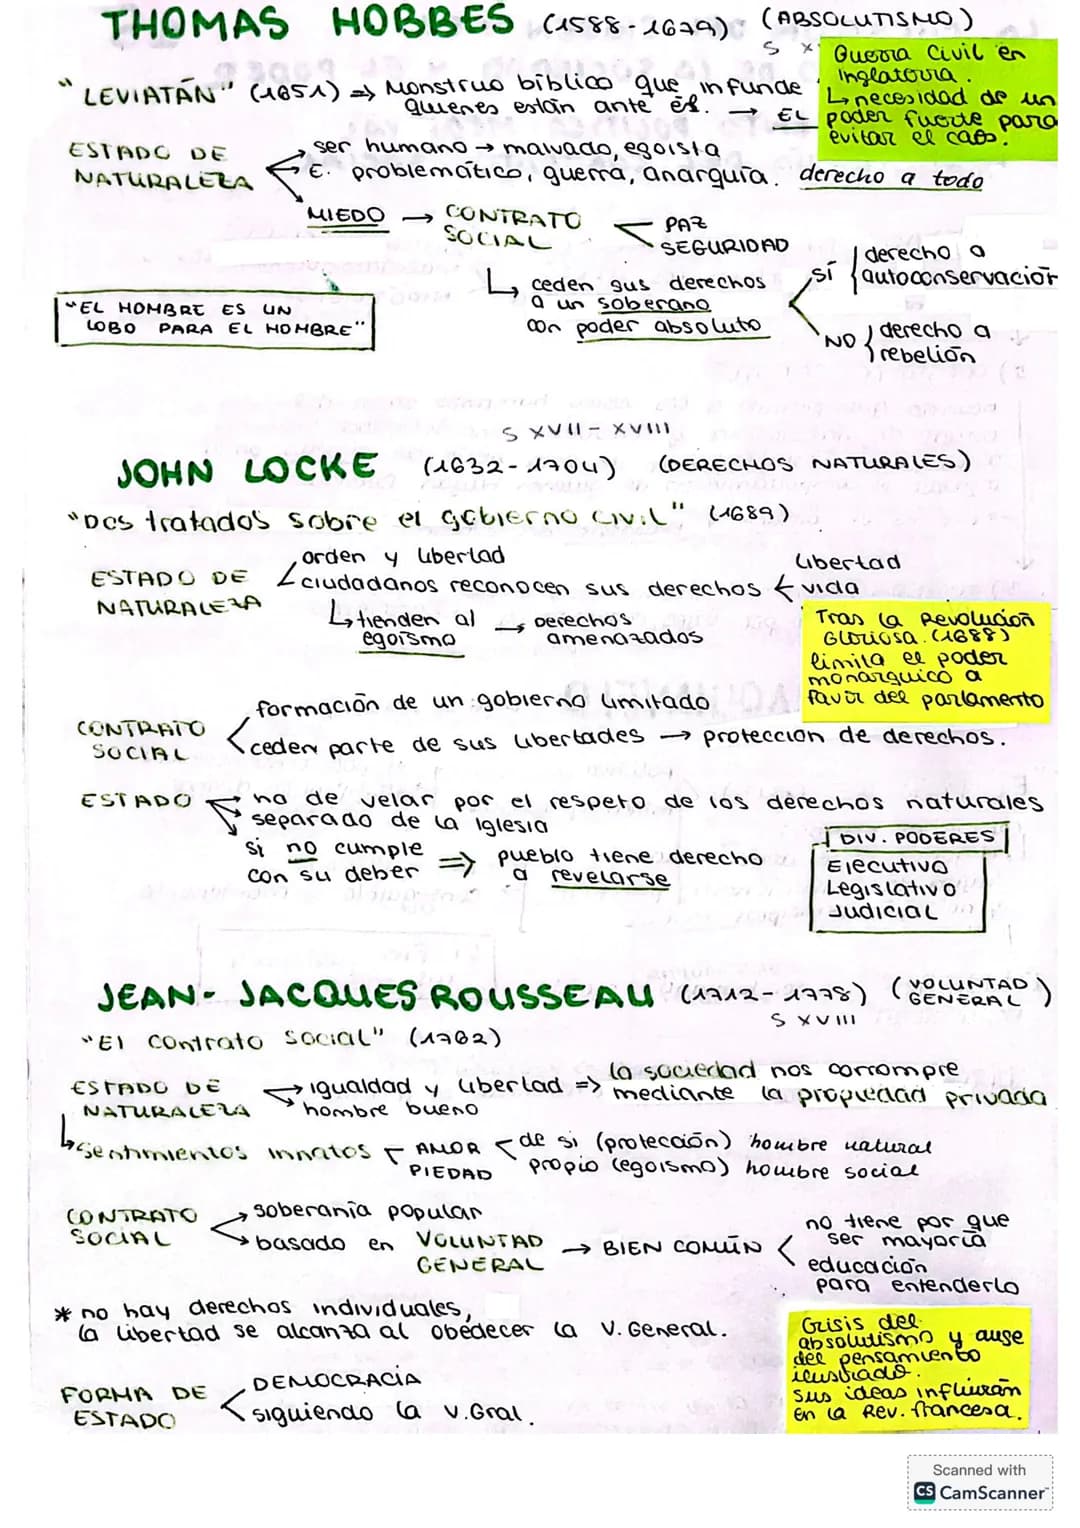 THOMAS HOBBES (1588-1679) (ABSOLUTISMO)
S X
Guerra Civil en
Inglaterra.
↳ necesidad de un
poder fuerte para
evitar el caos.
"LEVIATÁN" (1651) ⇒ Monstruo bíblico que infunde
quienes están ante él. → EL
ESTADO DE
NATURALEZA
ser humano → malvado, egoísta
E. problemático, guerra, anarquía. derecho a todo
MIEDO → CONTRATO
SOCIAL
PAZ
SEGURIDAD
↳ ceden sus derechos
a un soberano
con poder absoluto
SÍ derecho a
autoconservación
NO derecho a
rebelión
"EL HOMBRE ES UN
LOBO PARA EL HOMBRE"
S XVII - XVIII
JOHN LOCKE (1632-1704) (DERECHOS NATURALES)
"Dos tratados sobre el gobierno civil" (1689)
ESTADO DE
NATURALEZA
orden y libertad
ciudadanos reconocen sus derechos
libertad
vida
↳ tienden al
egoísmo
→ Derechos
amenazados
Tras la Revolución
Gloriosa. (1688)
limita el poder
monárquico a
favor del parlamento
CONTRATO
SOCIAL
formación de un gobierno limitado
ceden parte de sus libertades → protección de derechos.
ESTADO
ha de velar por el respeto de los derechos naturales
separado de la Iglesia
si no cumple
con su deber
⇒ pueblo tiene derecho
a revelarse
DIV. PODERES
Ejecutivo
Legislativo
Judicial
JEAN-JACQUES ROUSSEAU (1712-1778) (VOLUNTAD
GENERAL)
S XVIII
"El contrato social" (1762)
ESTADO DE
NATURALEZA
→ igualdad y libertad ⇒ la sociedad nos corrompe
hombre bueno
mediante la propiedad privada
↳ Sentimientos innatos
AMOR
PIEDAD
de sí (protección) hombre natural
propio (egoísmo) hombre social
CONTRATO
SOCIAL
soberanía popular
basado en VOLUNTAD
GENERAL
→ BIEN COMÚN
no tiene por que
ser mayoría
educación
para entenderlo
* no hay derechos individuales,
la libertad se alcanza al obedecer la V. General.
FORMA DE
ESTADO
DEMOCRACIA
siguiendo la V. Gral.
Crisis del
absolutismo y auge
del pensamiento
ilustrado.
sus ideas influirán
en la Rev. francesa.
Scanned with
CS CamScanner